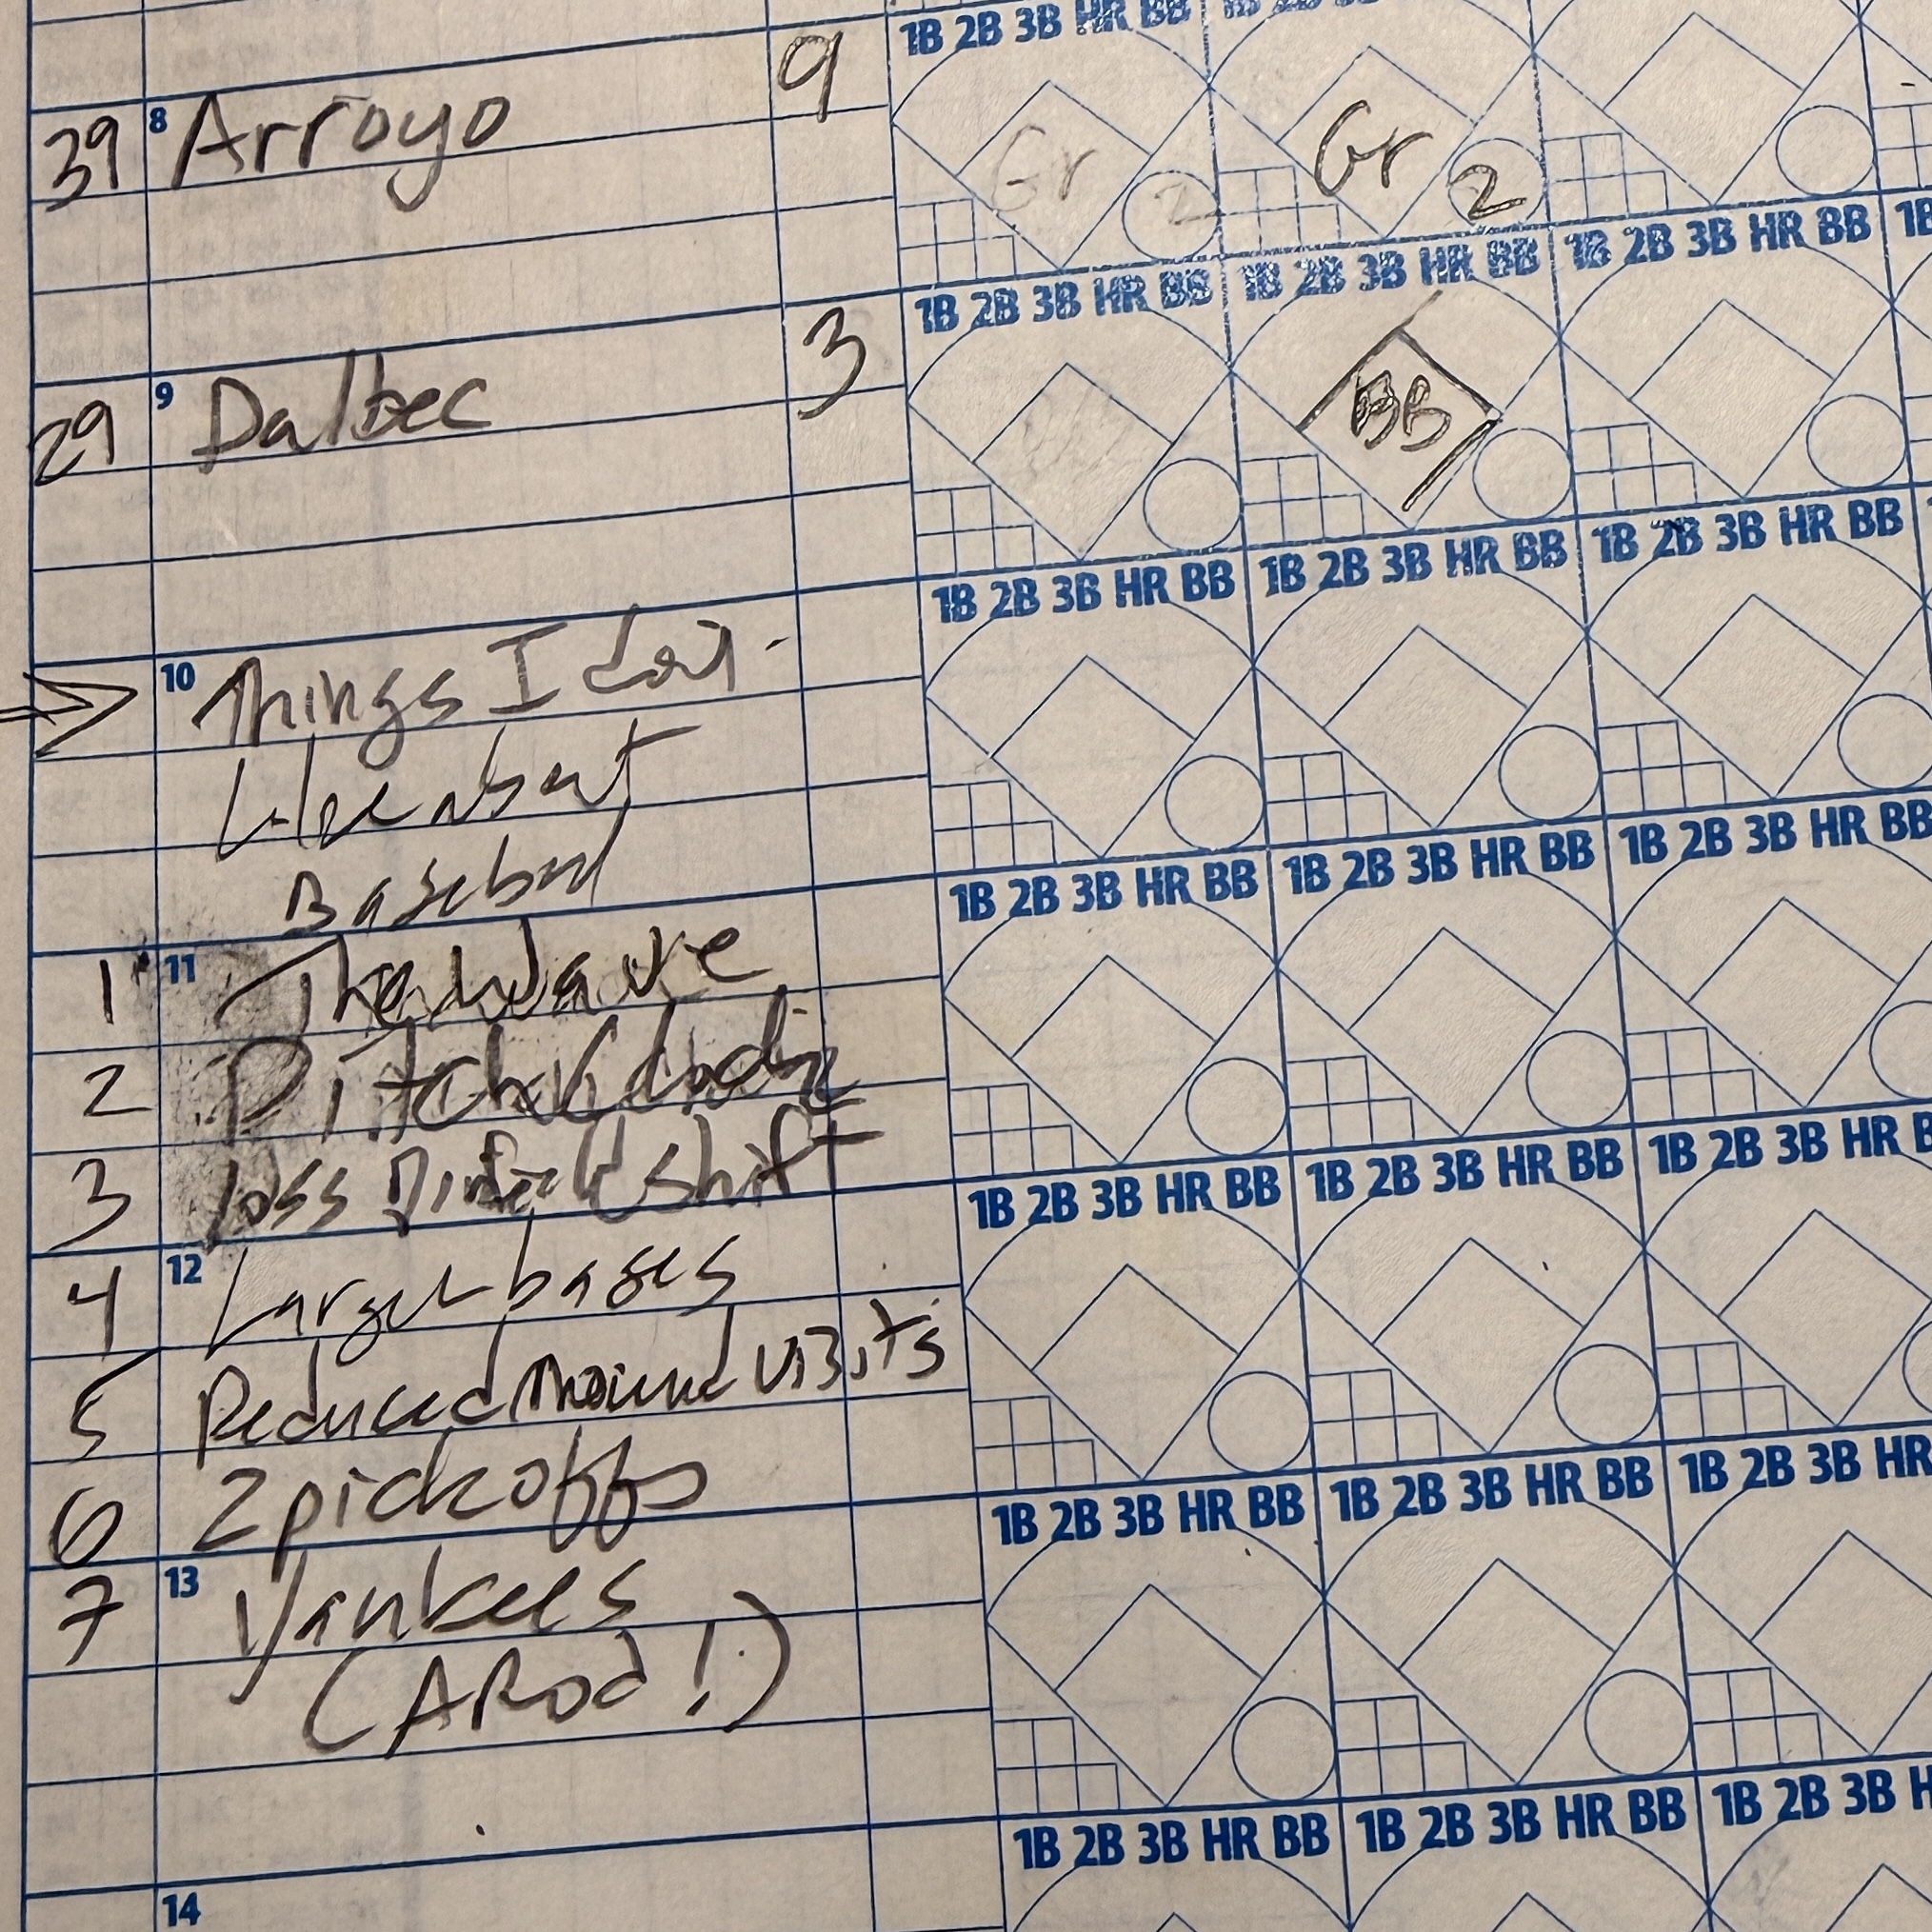 1B 2B 3B HR BB
39 8 Arroyo 9 Gr 2 Gr 2
1B 2B 3B HR BB 1B 2B 3B HR BB 1B 2B 3B HR BB 1B
29 9 Dalbec 3 BB
1B 2B 3B HR BB 1B 2B 3B HR BB 1B 2B 3B HR BB
10 Things I don't
like about
Baseball
1B 2B 3B HR BB 1B 2B 3B HR BB 1B 2B 3B HR BB
1 11 The Wave
2 Pitch Clock
3 loss infield shift
1B 2B 3B HR BB 1B 2B 3B HR BB 1B 2B 3B HR B
4 12 Larger bases
5 Reduced mound visits
6 2 pickoffs
1B 2B 3B HR BB 1B 2B 3B HR BB 1B 2B 3B HR
7 13 Yankees
(ARod!)
1B 2B 3B HR BB 1B 2B 3B HR BB 1B 2B 3B H
14